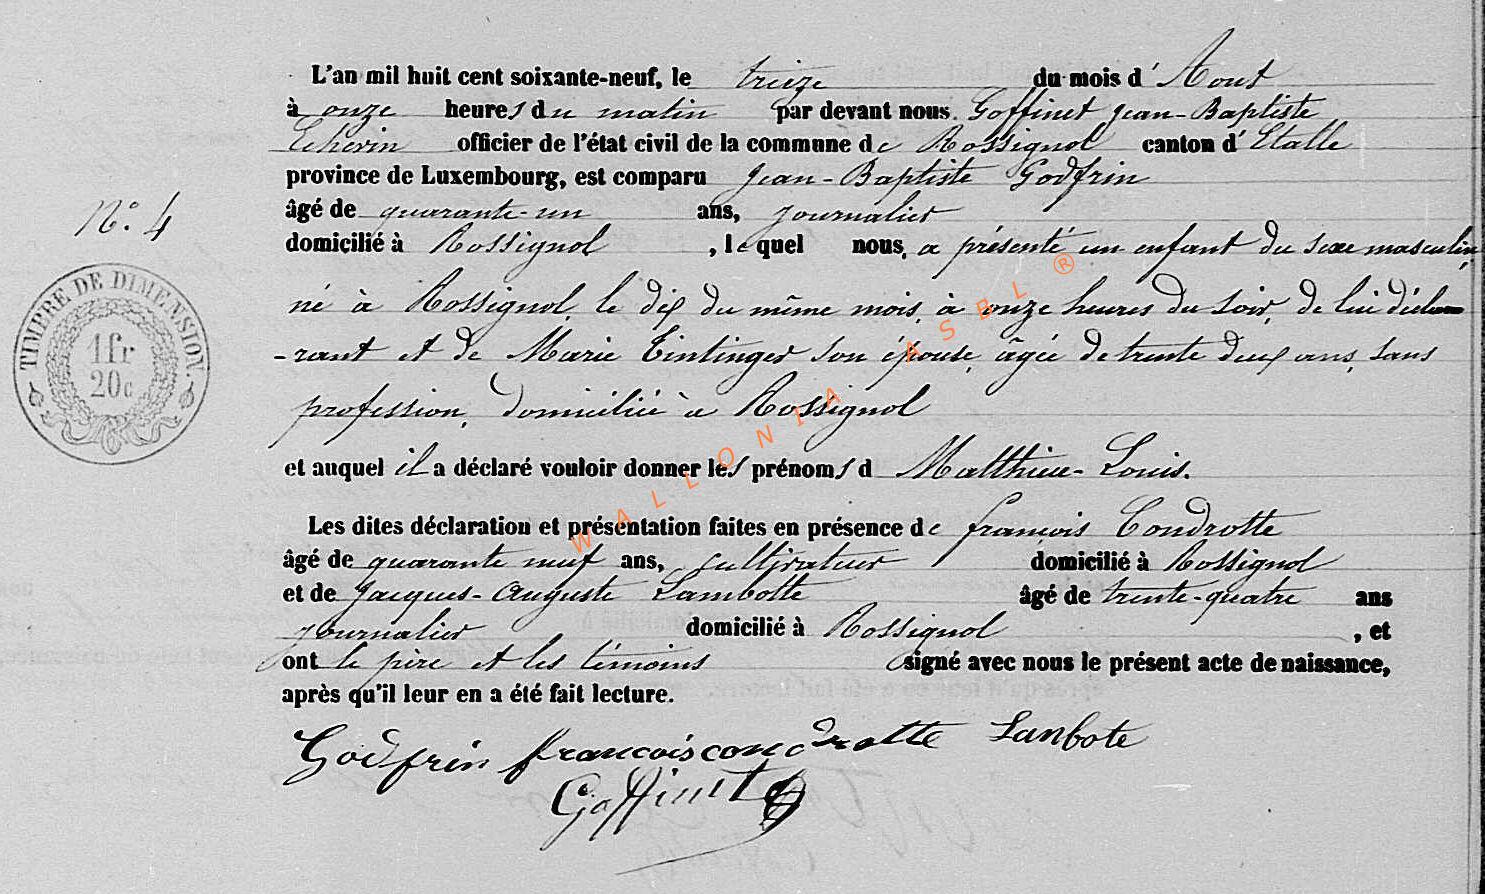 L'an mil huit cent soixante-neuf, le treize du mois d'Aout
à onze heures du matin par devant nous Goffinet Jean-Baptiste
Echevin officier de l'état civil de la commune de Rossignol canton d'Etalle
province de Luxembourg, est comparu Jean-Baptiste Godfrin
âgé de quarante-un ans, journalier
domicilié à Rossignol, lequel nous, a présenté un enfant du sexe masculin,
né à Rossignol, le dix du même mois, à onze heures du soir, de lui décla
-rant et de Marie Tintinger son épouse, âgée de trente deux ans, sans
profession, domiciliée à Rossignol
et auquel il a déclaré vouloir donner les prénoms d Matthieu-Louis.
Les dites déclaration et présentation faites en présence de françois Condrotte
âgé de quarante neuf ans, cultivateur domicilié à Rossignol
et de Jacques-Auguste Lambotte âgé de trente-quatre ans
journalier domicilié à Rossignol, et
ont le père et les témoins signé avec nous le présent acte de naissance,
après qu'il leur en a été fait lecture.
Godfrin francois condrotte Lanbote
Goffinet
N.° 4
TIMBRE DE DIMENSION.
1 fr
20c
WALLONIA ASBL ®